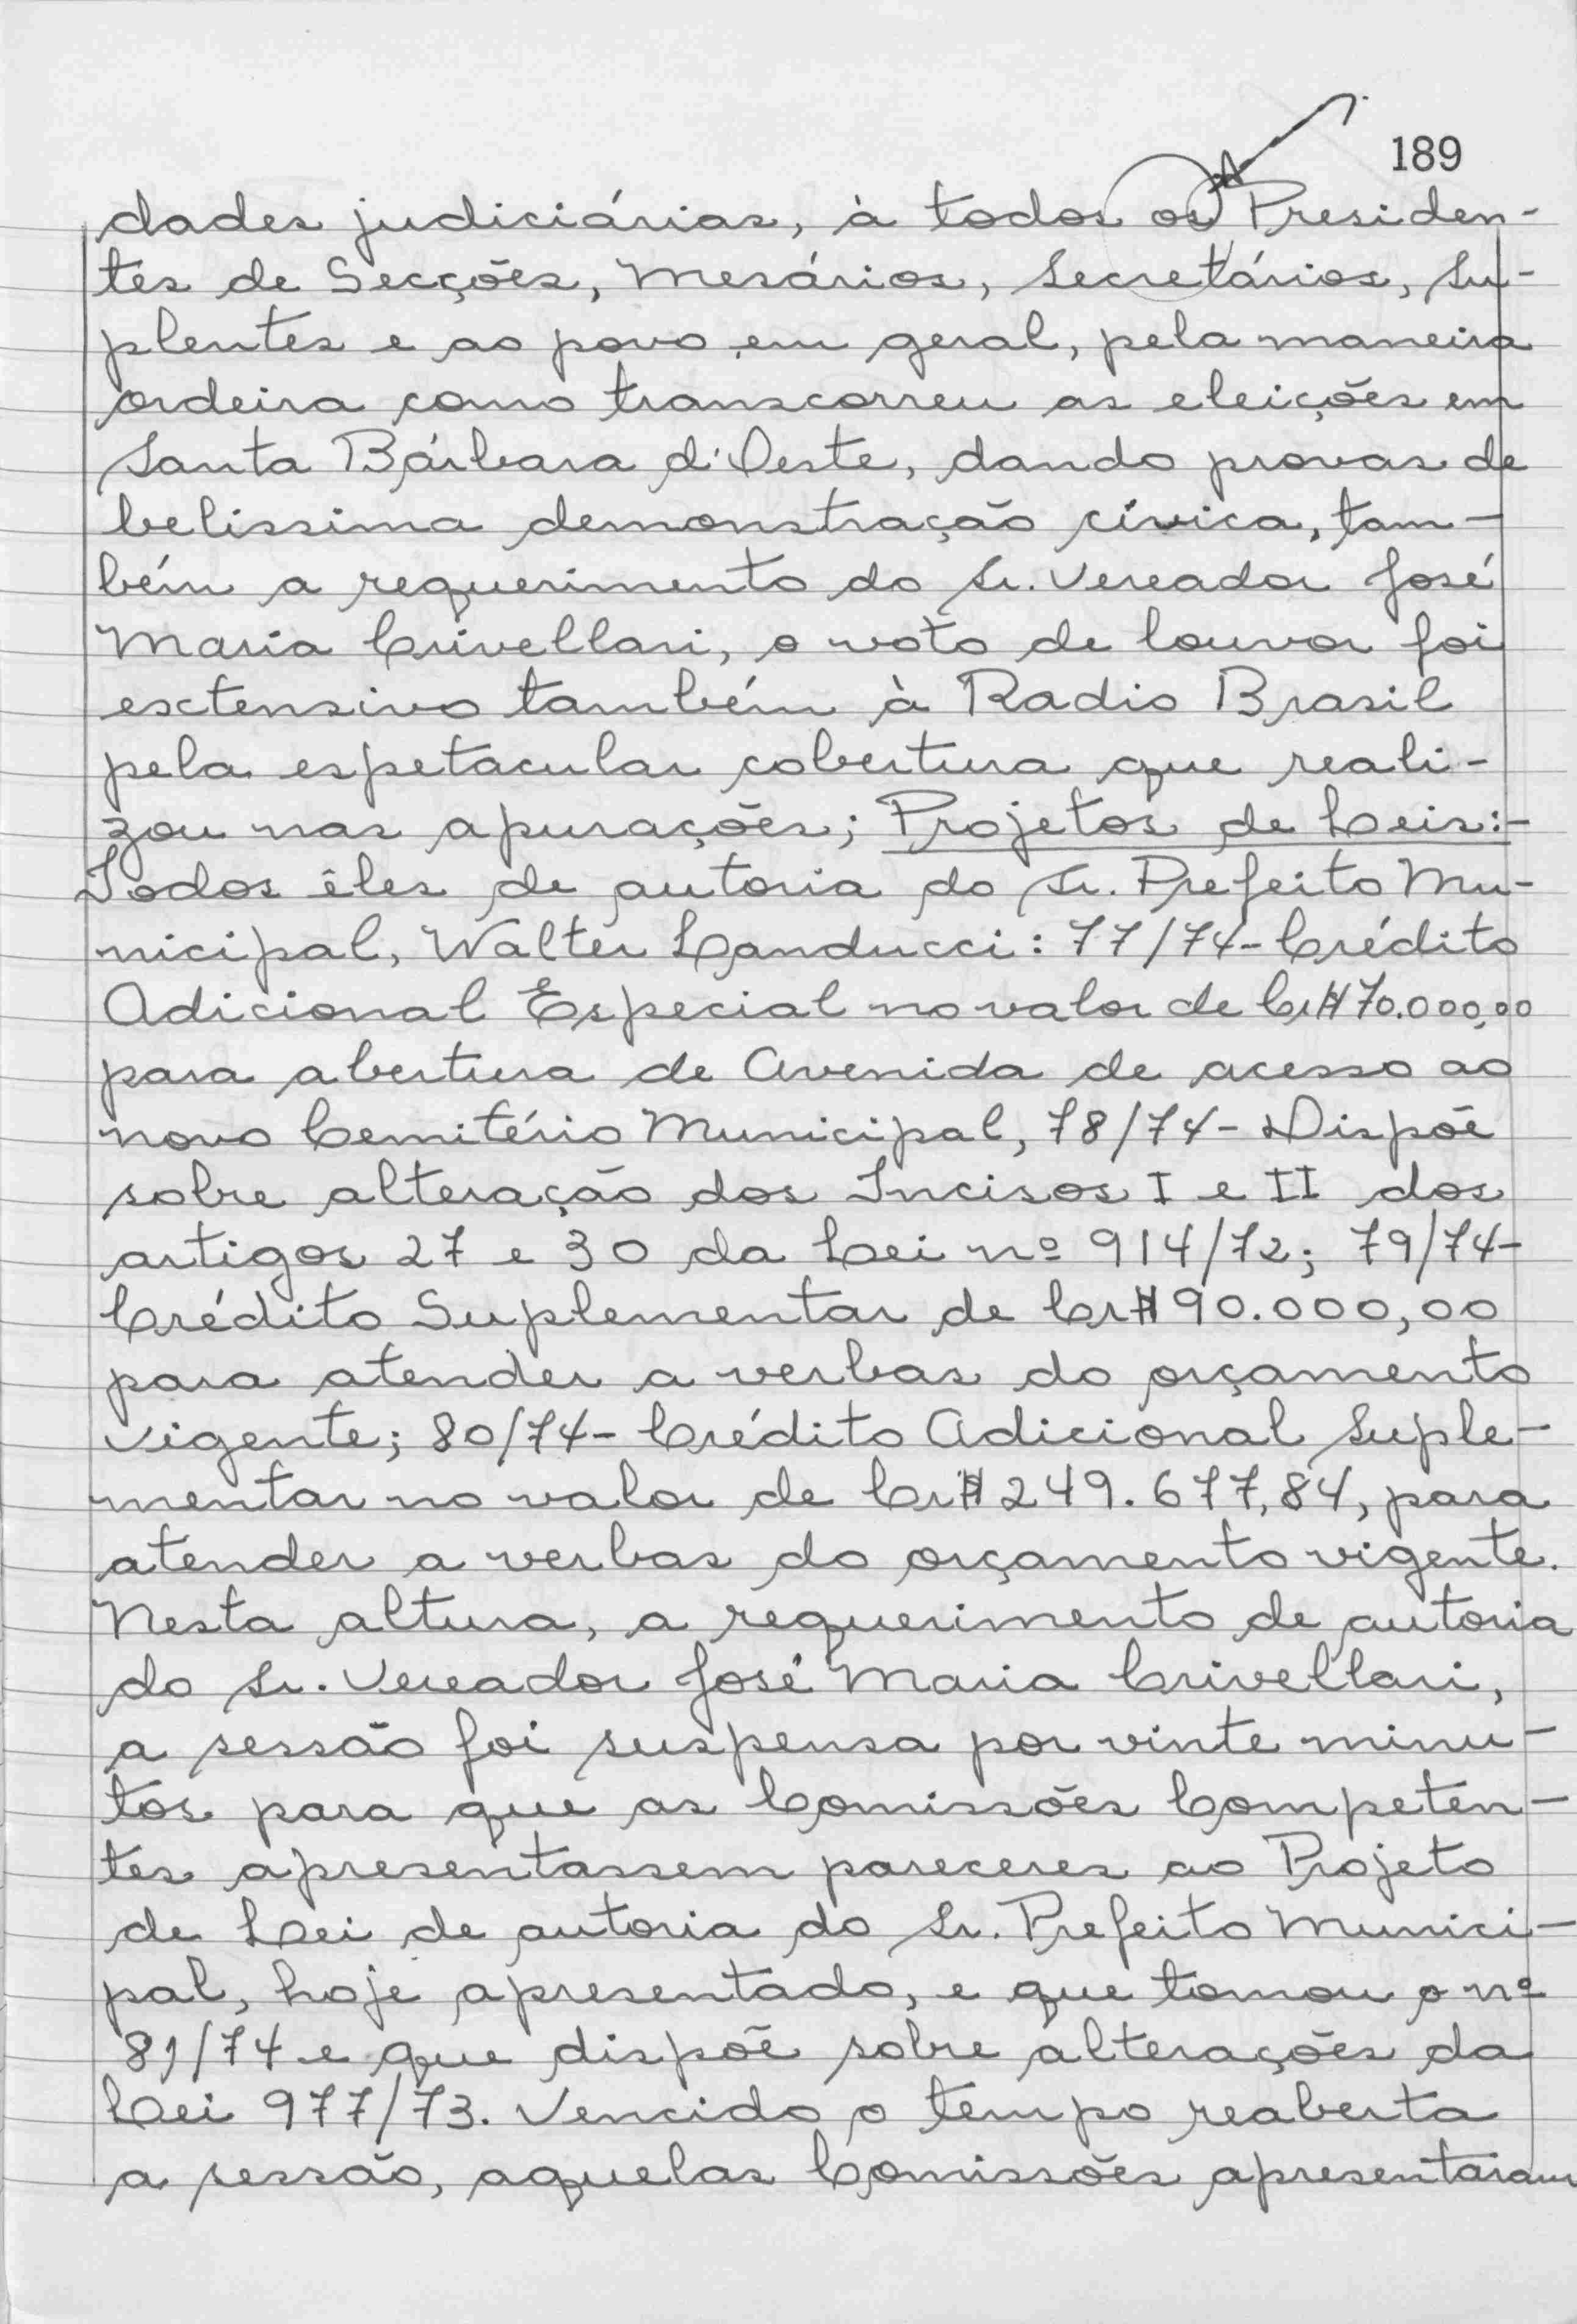 189
dades judiciárias, à todos os Presiden-
tes de Secções, Mesários, Secretários, Su-
plentes e ao povo em geral, pela maneira
ordeira como transcorreu as eleições em
Santa Bárbara d'Oeste, dando provas de
belissima demonstração cívica, tam-
bém a requerimento do Sr. Vereador José
Maria Crivellari, o voto de louvor foi
extensivo também à Radio Brasil
pela espetacular cobertura que reali-
zou nas apurações; Projetos de Leis:-
Todos êles de autoria do Sr. Prefeito Mu-
nicipal, Walter Landucci: 77/74- Crédito
Adicional Especial no valor de Cr$ 70.000,00
para abertura de Avenida de acesso ao
novo Cemitério Municipal, 78/74- Dispõe
sobre alteração dos Incisos I e II dos
artigos 27 e 30 da Lei nº 914/72; 79/74-
Crédito Suplementar de Cr$ 90.000,00
para atender a verbas do orçamento
vigente; 80/74- Crédito Adicional Suple-
mentar no valor de Cr$ 249.677,84, para
atender a verbas do orçamento vigente.
Nesta altura, a requerimento de autoria
do Sr. Vereador José Maria Crivellari,
a sessão foi suspensa por vinte minu-
tos para que as Comissões Competen-
tes apresentassem pareceres ao Projeto
de Lei de autoria do Sr. Prefeito Munici-
pal, hoje apresentado, e que tomou o nº
81/74 e que dispõe sobre alterações da
Lei 977/73. Vencido o tempo reaberta
a sessão, aquelas Comissões apresentaram